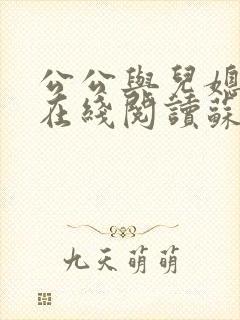 公公與兒媳
在綫閱讀蘇
九天萌萌